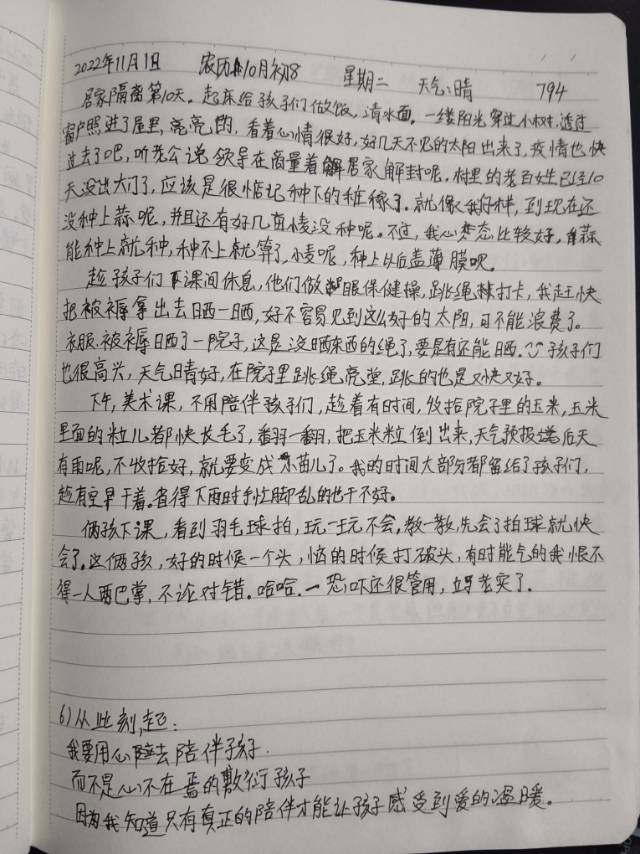 2022年11月1日 农历10月初8 星期二 天气:晴 794
居家隔离第10天。起床给孩子们做饭,清水面。一缕阳光穿过小树,透过
窗户照进了屋里,亮亮的,看着心情很好,好几天不见的太阳出来了,疫情也快
过去了吧,听老公说领导在商量着解居家解封呢。村里的老百姓已经10
天没出大门了,应该是很惦记种下的庄稼了。就像我们村,到现在还
没种上蒜呢,并且还有好几亩小麦没种呢。不过,我心态比较好,蒜
能种上就种,种不上就算了,小麦呢,种上以后盖薄膜呗。
趁孩子们下课间休息,他们做眼保健操,跳绳打卡,我赶快
把被褥拿出去晒一晒,好不容易见到这么好的太阳,可不能浪费了。
衣服、被褥晒了一院子,这是没晒东西的绳了,要是有还能晒。孩子们
也很高兴,天气晴好,在院子里跳绳亮堂,跳的也是又快又好。
下午,美术课,不用陪伴孩子们,趁着有时间,收拾院子里的玉米,玉米
里面的粒儿都快长毛了,翻一翻,把玉米粒倒出来,天气预报说后天
有雨呢,不收拾好,就要变成小苗儿了。我的时间大部分都留给了孩子们,
趁有空早干着。省得下雨时手忙脚乱的也干不好。
俩孩下课,看到羽毛球拍,玩一玩不会,教一教,先会了拍球就快
会了。这俩孩,好的时候一个头,恼的时候打破头,有时能气的我恨不
得一人两巴掌,不论对错。哈哈.一恐吓还很管用,立马老实了.
6)从此刻起:
我要用心陪去陪伴孩子.
而不是心不在焉的敷衍孩子
因为我知道只有真正的陪伴才能让孩子感受到爱的温暖。